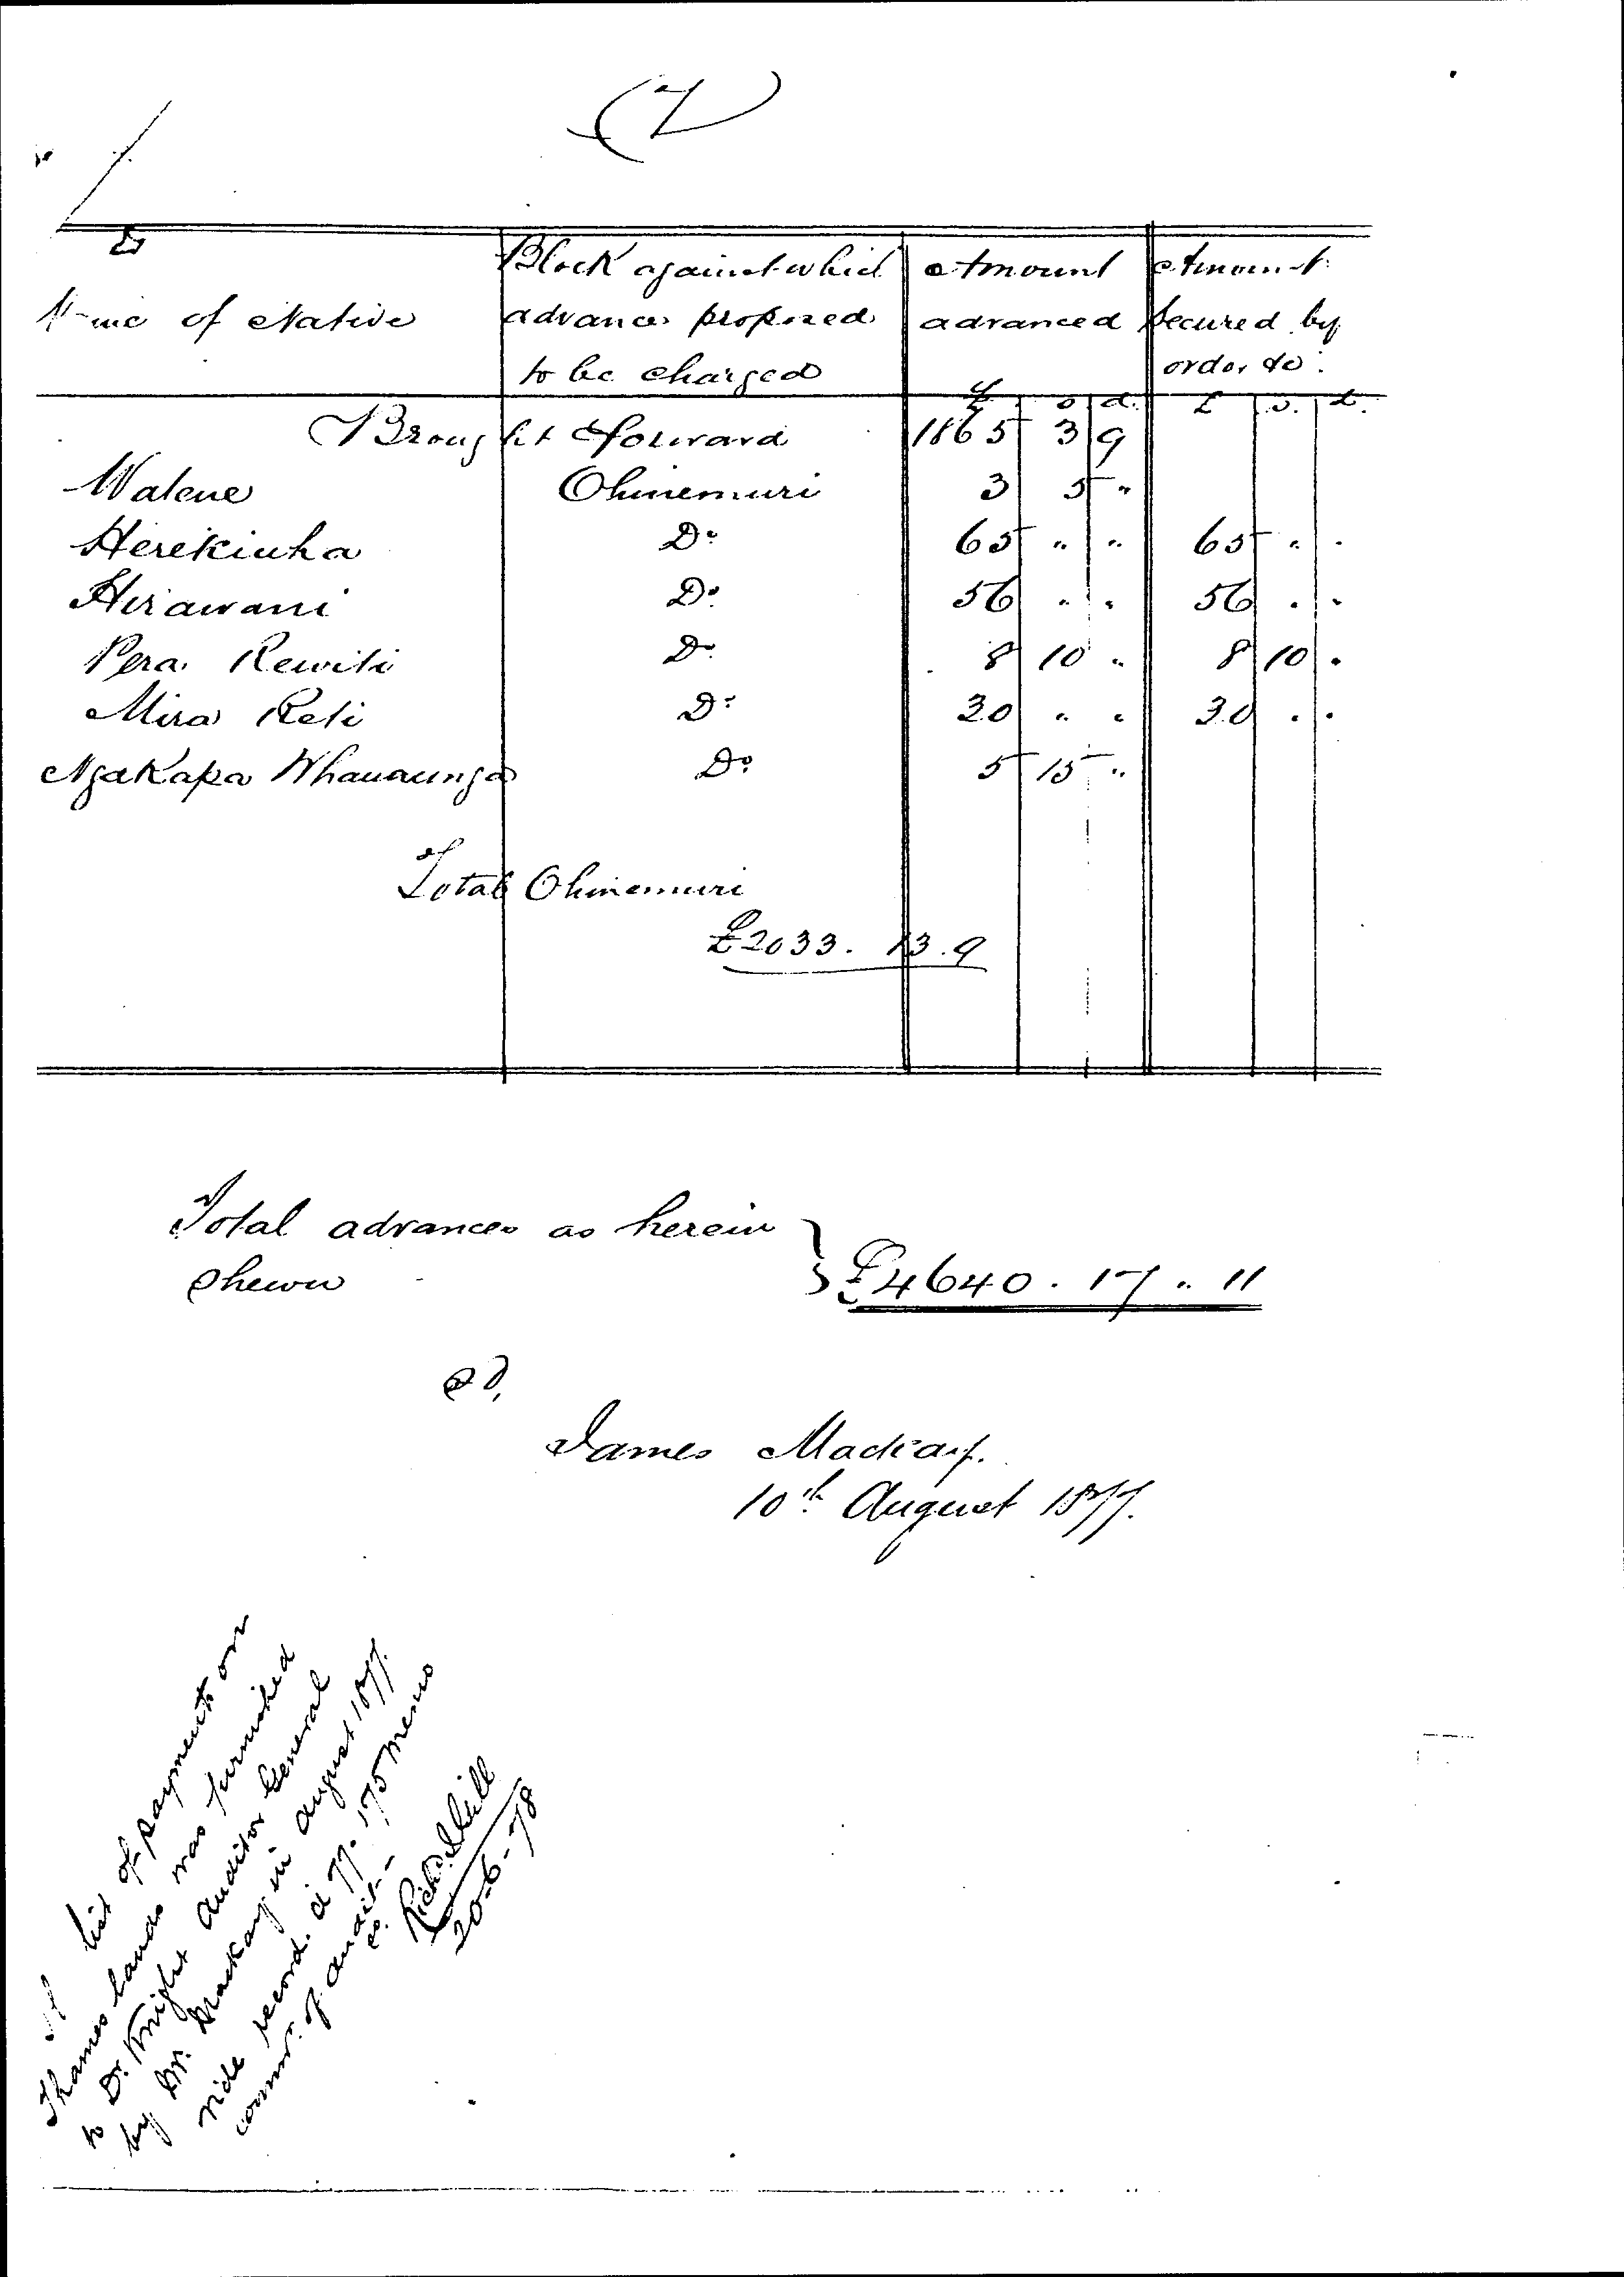 (7)
Name of Native | Block against which advances proposed to be charged | Amount advanced | Amount secured by order &c.
£ s d £ s. d.
Brought forward 1865 3 9
Watene Ohinemuri 3 5 "
Herekiuha Do 65 " " 65 " "
Hirawani Do 56 " " 56 " "
Pera Rewiti Do 8 10 " 8 10 "
Mira Reti Do 30 " " 30 " "
Ngakapa Whanaunga Do 5 15 "
Total Ohinemuri
£2033. 13. 9
Total advances as herein
shewn } £4640 . 17 " 11
sd,
James Mackay.
10th August 1877.
A list of payments on
Thames lands was furnished
to Dr. Knight Auditor General
by Mr. Mackay in August 1877.
vide record. a 77. 175 memo
commr. of audit -
Richd.
20-6-78